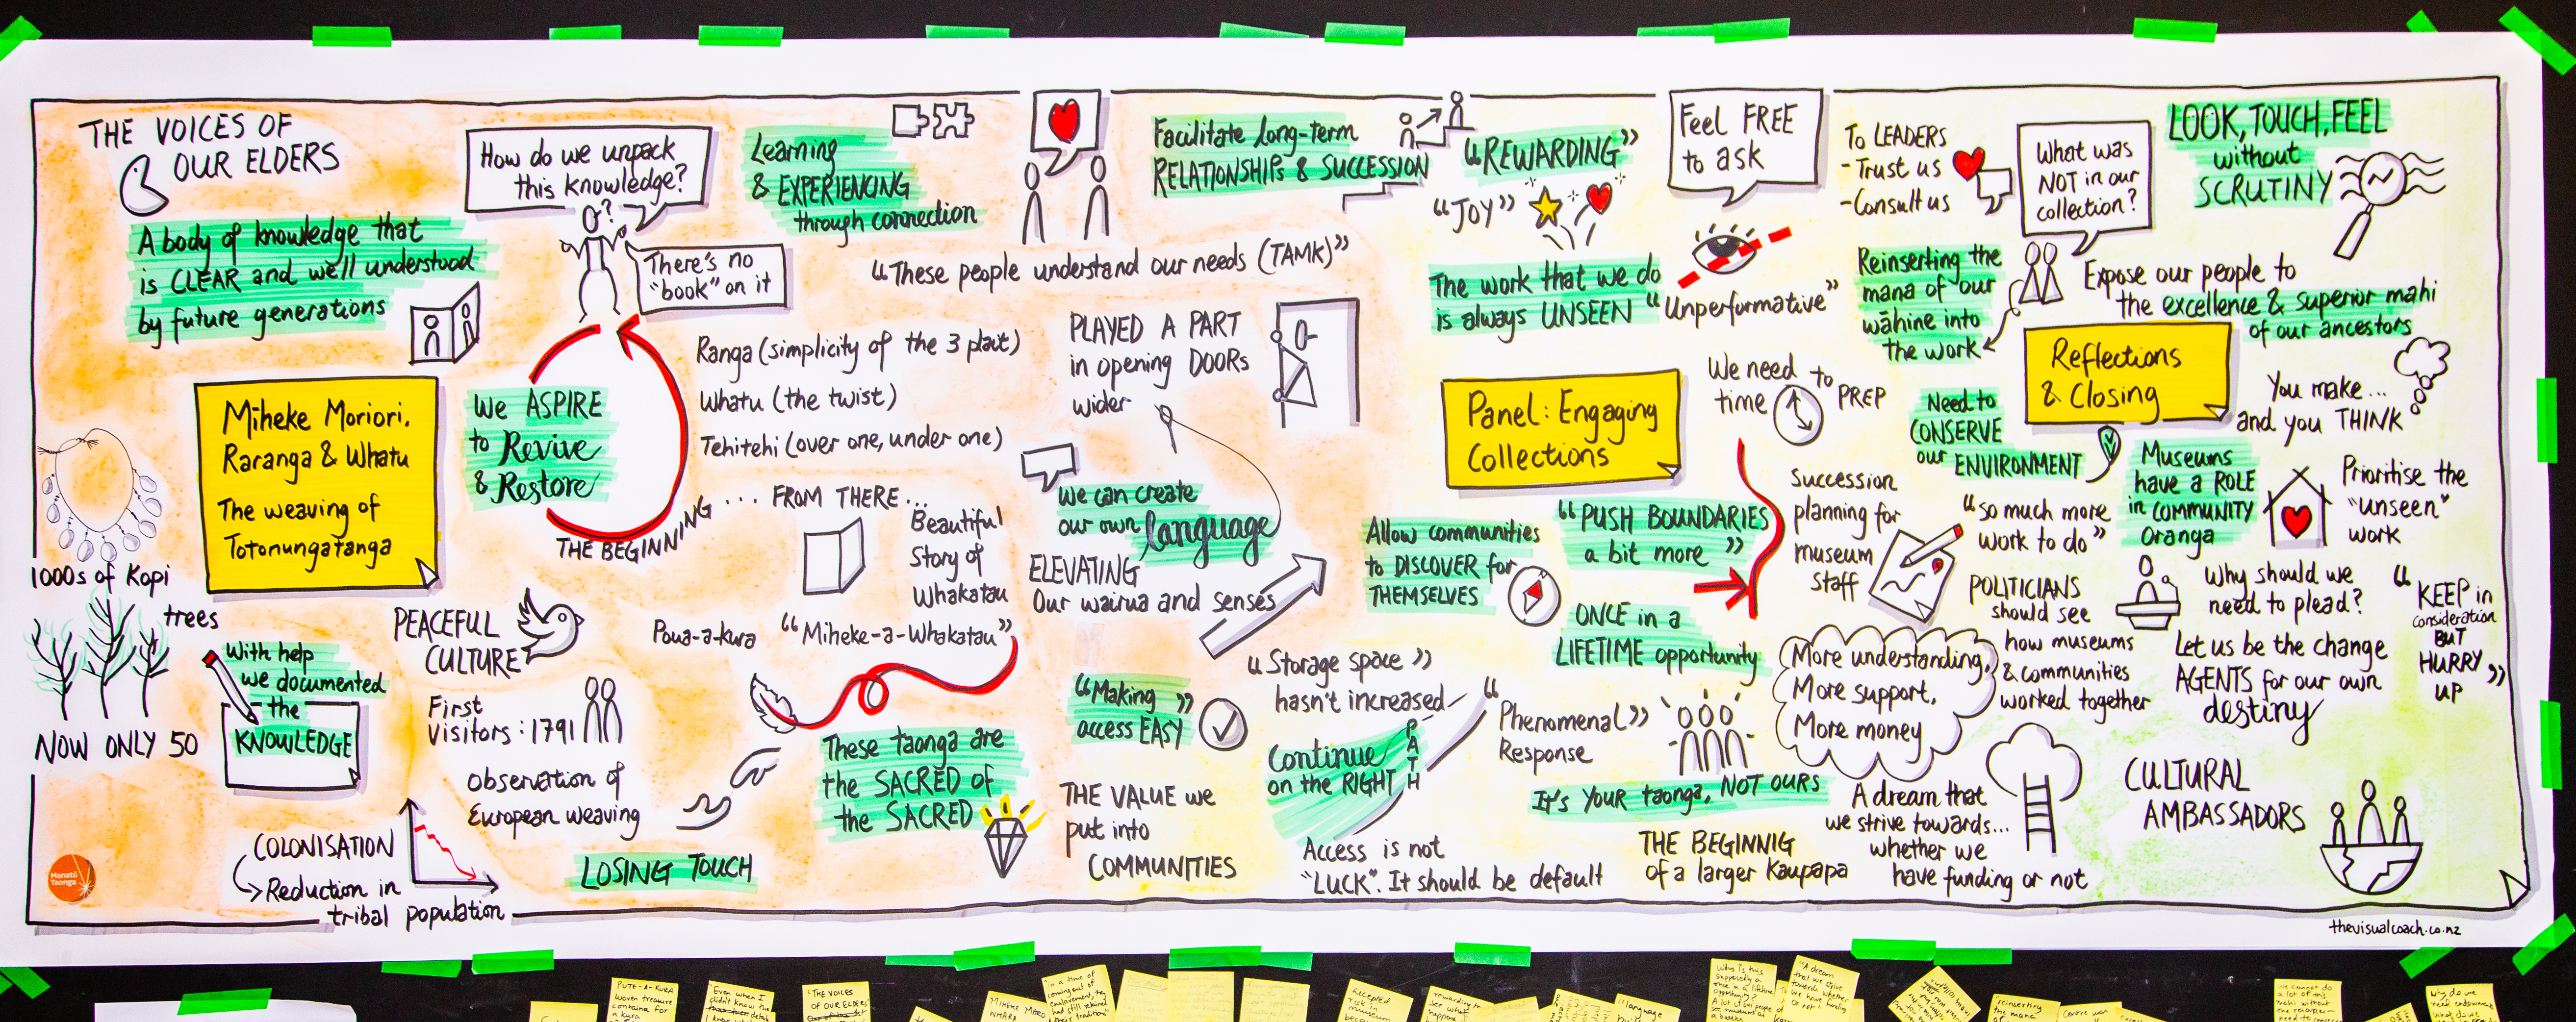 THE VOICES OF
OUR ELDERS
A body of knowledge that
is CLEAR and well understood
by future generations
Miheke Moriori.
Raranga & Whatu
The weaving of
Totonungatanga
1000s of Kopi
trees
NOW ONLY 50
With help
we documented
the
KNOWLEDGE
Manatū
Taonga
COLONISATION
Reduction in
tribal population
How do we unpack
this knowledge?
?
There's no
"book" on it
We ASPIRE
to Revive
& Restore
THE BEGINNING
... FROM THERE...
PEACEFUL
CULTURE
First
Visitors: 1791
Observation of
European weaving
LOSING TOUCH
Learning
& EXPERIENCING
through connection
"These people understand our needs (TAMK)"
Ranga (simplicity of the 3 plait)
Whatu (the twist)
Tehitehi (over one, under one)
Beautiful
Story of
Whakatau
Poua-a-kura
"Miheke-a-Whakatau"
These taonga are
the SACRED of
the SACRED
PLAYED A PART
in opening DOORs
wider
We can create
our own language
ELEVATING
Our wairua and senses
"Making
access EASY"
THE VALUE we
put into
COMMUNITIES
Facilitate long-term
RELATIONSHIPs & SUCCESSION
"REWARDING"
"JOY"
The work that we do
is always UNSEEN
"Unperformative"
Feel FREE
to ask
Panel: Engaging
Collections
We need
time to PREP
Allow communities
to DISCOVER for
THEMSELVES
"PUSH BOUNDARIES
a bit more"
ONCE in a
LIFETIME opportunity
"Storage space"
hasn't increased
Continue
on the RIGHT
PATH
"Phenomenal"
Response
It's YOUR taonga, NOT OURS
Access is not
"LUCK". It should be default
THE BEGINNIG
of a larger Kaupapa
Succession
planning for
museum
staff
More understanding,
More support,
More money
A dream that
we strive towards...
whether we
have funding or not
To LEADERS
- Trust us
- Consult us
What was
NOT in our
collection?
LOOK, TOUCH, FEEL
without
SCRUTINY
Reinserting the
mana of our
wāhine into
the work
Expose our people to
the excellence & superior mahi
of our ancestors
Reflections
& Closing
You make...
and you THINK
Need to
CONSERVE
our ENVIRONMENT
Museums
have a ROLE
in COMMUNITY
Oranga
Prioritise the
"unseen"
work
"so much more
work to do"
POLITICIANS
should see
how museums
& communities
worked together
Why should we
need to plead?
Let us be the change
AGENTS for our own
destiny
"KEEP in
consideration
BUT
HURRY
UP"
CULTURAL
AMBASSADORS
thevisualcoach.co.nz
PUTE-A-KURA
woven treasure
"Even when I
didn't know the
"THE VOICES
OF OUR ELDERS
Accepted
museum
rewarding to
see what
language
Why is this
supposedly a
once in a lifetime
opportunity?
"A dream
that we strive
towards whether
we have funding
or not"
reinserting
the mana
we cannot do
a lot of this
mahi without
Why do we